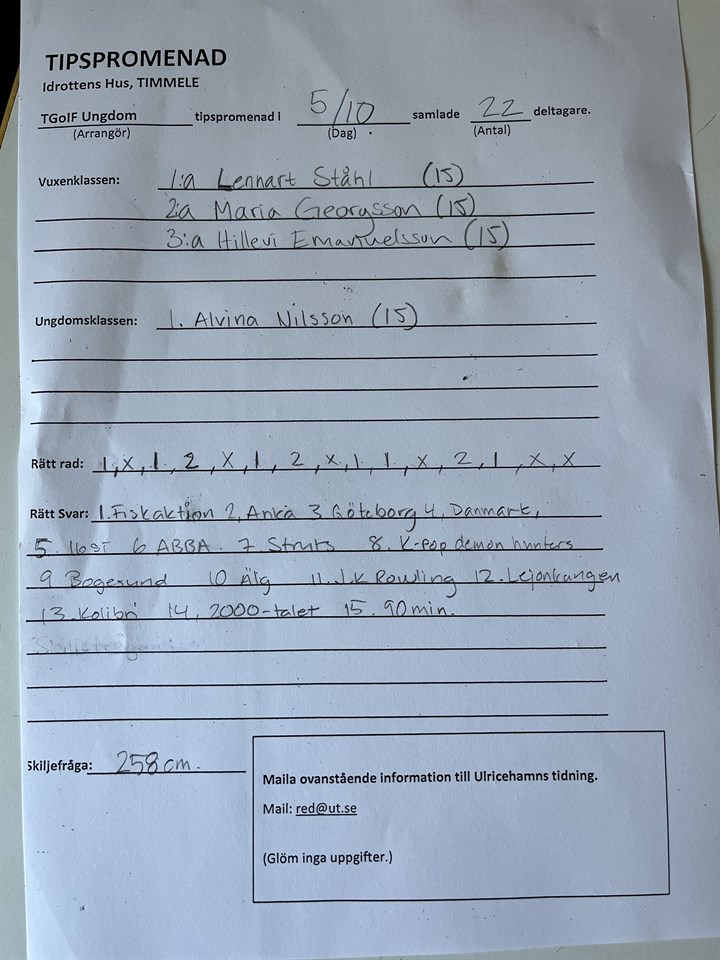 TIPSPROMENAD
Idrottens Hus, TIMMELE
TGoIF Ungdom tipspromenad i 5/10 samlade 22 deltagare.
(Arrangör) (Dag) (Antal)
Vuxenklassen: 1:a Lennart Ståhl (15)
2:a Maria Georgsson (15)
3:a Hillevi Emanuelsson (15)
Ungdomsklassen: 1. Alvina Nilsson (15)
Rätt rad: 1, X, 1, 2, X, 1, 2, X, 1, 1, X, 2, 1, X, X
Rätt Svar: 1. Fiskaktion 2, Anka 3 Göteborg 4, Danmark,
5. 6 ABBA. 7. Struts 8. K-pop demon hunters
9 Bogesund 10 Älg 11. J.K Rowling 12. Lejonkungen
13. Kolibri 14, 2000-talet 15. 90 min.
Skiljefråga: 258 cm.
Maila ovanstående information till Ulricehamns tidning.
Mail: red@ut.se
(Glöm inga uppgifter.)